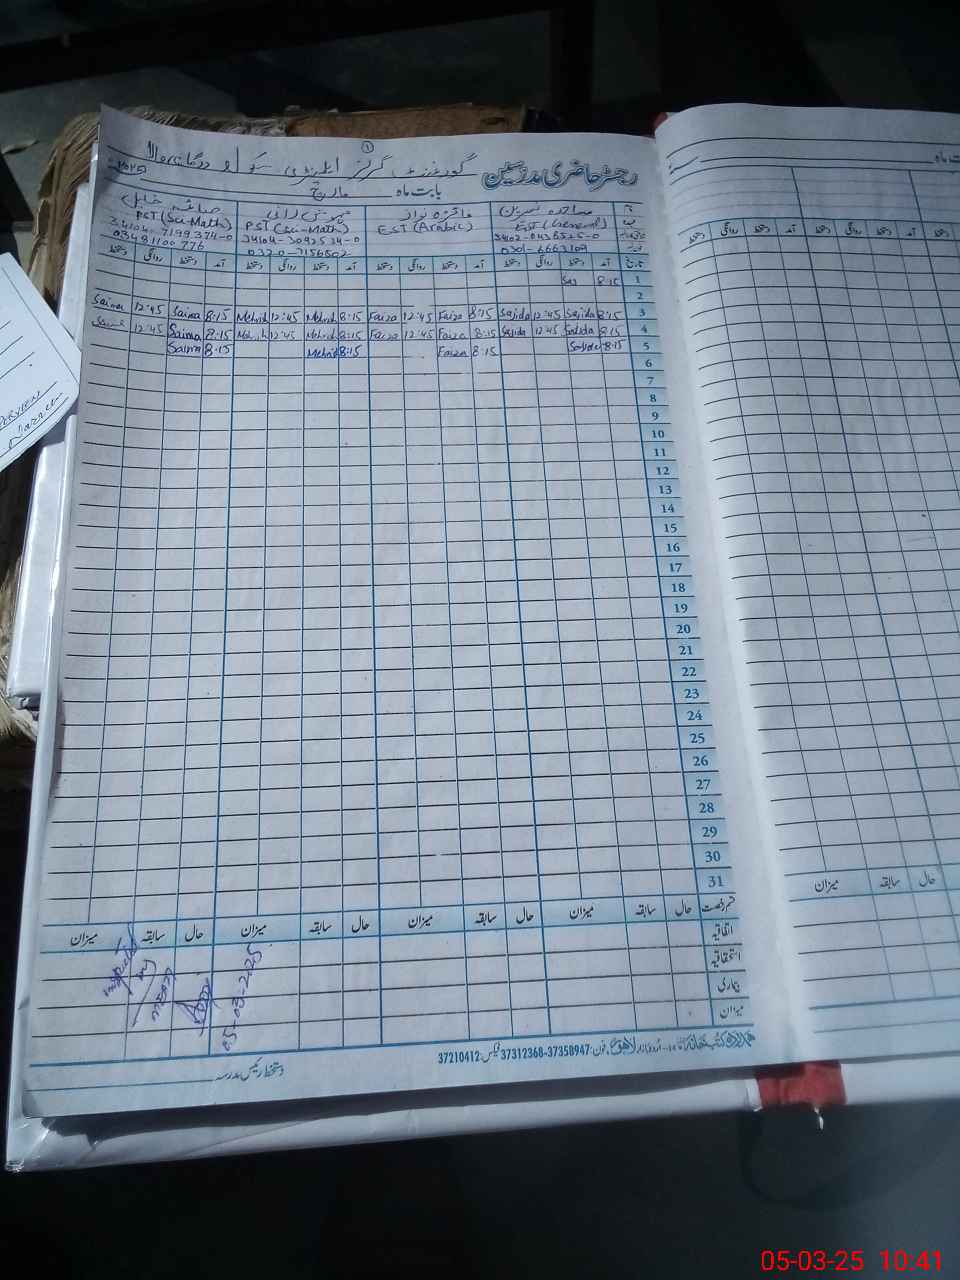 رجسٹر حاضری مدرسین گورنمنٹ گرلز ایلیمنٹری سکول
بابت ماہ مارچ ۲۰۲۵
ساجدہ نسرین فائزہ نواز مہوش رانی صائمہ
EST (General) EST (Arabic) PST (Sci-Math) PST (Sci-Math)
34104-3092534-0 34104-7199374-0
0301-6663109 0320-7156502 03481100776
تاریخ آمد دستخط روانگی دستخط آمد دستخط روانگی دستخط آمد دستخط روانگی دستخط آمد دستخط روانگی دستخط
1 8:15 Saj
2
3 8:15 Sajida 12:45 Sajida 8:15 Faiza 12:45 Faiza 8:15 Mehvish 12:45 Mehvish 8:15 Saima 12:45 Saima
4 8:15 Sajida 12:45 Sajida 8:15 Faiza 12:45 Faiza 8:15 Mehvish 12:45 Mehvish 8:15 Saima 12:45 Saima
5 8:15 Sajida 8:15 Faiza 8:15 Mehvish 8:15 Saima
6
7
8
9
10
11
12
13
14
15
16
17
18
19
20
21
22
23
24
25
26
27
28
29
30
31
قسم رخصت حال سابقہ میزان حال سابقہ میزان حال سابقہ میزان حال سابقہ میزان
اتفاقیہ
استحقاقیہ
بیماری
میزان
05-03-2025
اردو بازار لاہور فون: 37358947-37312368 فیکس: 37210412
دستخط رئیس مدرسہ
بابت ماہ
دستخط روانگی دستخط آمد دستخط روانگی دستخط
حال سابقہ میزان
05-03-25 10:41